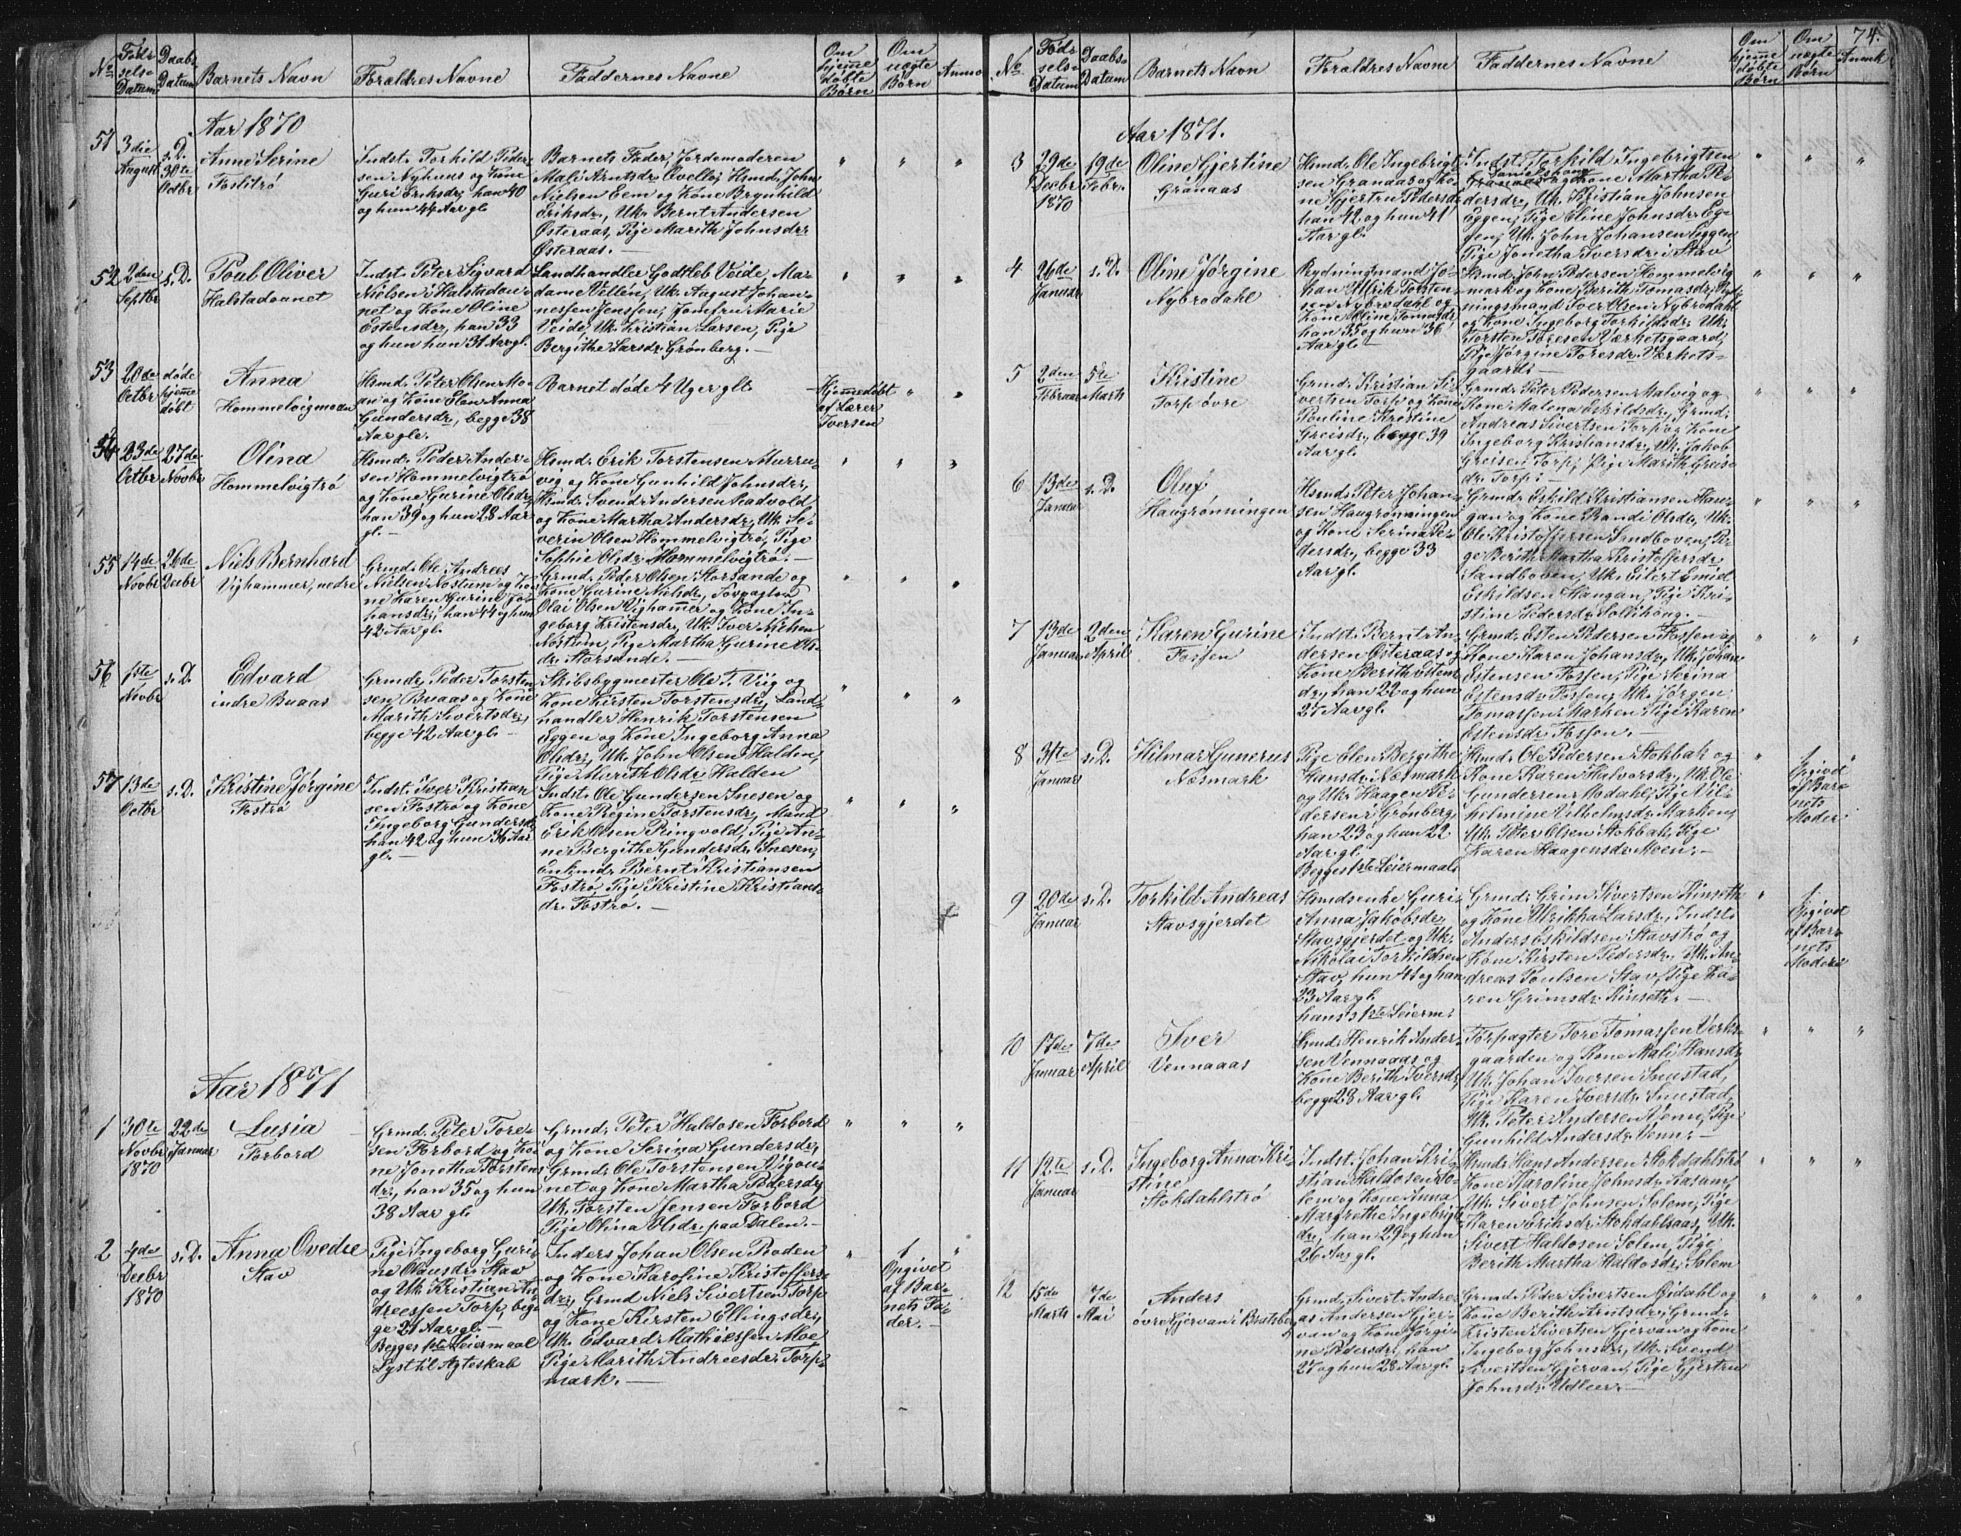 No
Fød-
selse
Datum
Daabs
Datum
Barnets Navn
Foraldres Navne
Faddernes Navne
Om
hjemme
døbte
Børn
Om
uægte
Børn
Aar 1870
51
3die
August
s. D.
30te
Octbr
Anne Serine
Indst. Torkild Peder-
sen Nyhuus og Kone
Guri Eriksdr, han 40
og hun 44 Aar gl.
Barnets Fader, Jordemoderen
Mali Arntsdr. Hvelbi, Hsmd. John
Nielsen Eem og Kone Brynhild
Eriksdr., Uk. Bernt Andersen
Østeraas, Pige Marith Johnsdr.
Østeraas. —
52
2den
Septbr
s. D.
Poul Oliver
Halstadvanet
Indst. Peter Sigvard
Nielsen i Halstadva-
net og Kone Oline
Estensdr, han 33
og hun 31 Aar gl.
Landhandler Godtleb Veide, Ma-
dame Villén, Uk. August Johan-
nessen Jenssen, Jomfru Marie
Veide, Uk. Kristian Larsen, Pige
Bergithe Larsdr. Grønberg. —
53
20de
Octbr
døde
hjemme
døbt
Anna
Hommelvigmoen
Hsmd. Peter Olsen Mo-
en og Kone Elen Anna
Gundersdr, begge 38
Aar gl.
Barnet døde 4 Uger gl. —
Hjemmedøbt
af Lærer
Iversen
54
23de
Octbr
27de
Novbr
Olina
Hommelvigtrø
Hsmd. Peder Ander-
sen Hommelvigtrø
og Kone Gurine Olsdr,
han 39 og hun 28 Aar
gl. —
Hsmd. Erik Torstensen Murru-
vig og Kone Gunhild Johnsdr,
Hsmd. Svend Andersen Aadvold
og Kone Martha Andersdr, Uk. Se-
verin Olsen Hommelvigtrø, Pige
Sophie Olsdr. Hommelvigtrø. —
55
14de
Novbr
26de
Decbr
Niels Bernhard
Vighammer, nedre
Grmd. Ole Andreas
Nielsen Nostum og Ko-
ne Karen Gurine Jo-
hansdr, han 44 og hun
42 Aar gl.
Grmd. Peder Olsen Storsande og
Kone Gurine Nielsdr, Forpagter
Olai Olsen Vighammer og Kone In-
geborg Kristensdr, Uk. Iver Nielsen
Nostum, Pige Martha Gurine Ols-
dr. Storsande. —
56
1ste
Novbr
s. D.
Edvard
indre Buaas
Grmd. Peder Torsten-
sen Buaas og Kone
Marith Sivertsdr,
begge 42 Aar gl. —
Skibsbygmester Ole T. Viig og
Kone Kirsten Torstensdr, Land-
handler Henrik Torstensen
Eggen og Kone Ingeborg Anna
Olsdr, Uk. John Olsen Halden,
Pige Marith Olsdr. Halden
57
13de
Octbr
s. D.
Kristine Jørgine
Fostrø
Indst. Iver Kristian-
sen Fostrø og Kone
Ingeborg Gundersdr,
han 42 og hun 36 Aar
gl. —
Indst. Ole Gundersen Snesen og
Kone Regine Torstensdr,
Erik Olsen Ringvold, Pige An-
ne Bergithe Gundersdr. Snesen,
Enkemd. Bernt Kristiansen
Fostrø, Pige Kristine Kristians-
dr. Fostrø. —
Aar 1871
1
30te
Novbr
1870
22de
Januar
Lusia
Forbord
Grmd. Peter Tore-
sen Forbord og Ko-
ne Jonetha Torstens-
dr, han 35 og hun
38 Aar gl.
Grmd. Peter Haldosen Forbord
og Kone Serina Gundersdr,
Grmd. Ole Torstensen
net og Kone Martha Pedersdr,
Uk. Torsten Jensen Forbord
Pige Olina Olsdr. paa Dalen. —
2
4de
Decbr
1870
s. D.
Anna Ovedie
Stav
Pige Ingeborg Guri-
ne Olausdr. Stav
og Uk. Kristian An-
dreessen Torp, beg-
ge 21 Aar gl. —
Begges 1ste Leiermaal
Lyst til Ægteskab
Inders. Johan Olsen Roden
og Kone Karoline Kristoffers-
dr, Grmd Niels Sivertsen Torp
og Kone Kirsten Ellingsdr,
Uk. Edvard Mathiessen Moe
Pige Marith Andreesdr. Torp-
mark. —
1
Opgivet
af Bar-
nets Fa-
der. —
74.
No
Fød-
selse
Datum
Daabs-
Datum
Barnets Navn
Foraldres Navne
Faddernes Navne
Om
hjemme
døbte
Børn
Om
uægte
Børn
Anmk
Aar 1871.
3
29de
Decbr
1870
19de
Febr.
Oline Gjertine
Granaas
Hsmd. Ole Ingebrigt-
sen Granaas og Ko-
ne Gjertru Pedersdr
han 42 og hun 41
Aar gl.
Indst. Torkild Ingebrigtsen
Kone Martha Pe-
dersdr, Uk. Kristian Johnsen
Eggen, Pige Eline Johnsdr. Eg-
gen, Uk. John Johansen Eggen
Pige Jonetha Iversdr. Stav
4
26de
Januar
s. D.
Oline Jørgine
Nybrodahl
Rydningsmand Jo-
han Ulrik Torsten-
sen Nybrodahl og
Kone Oline Tomasdr,
han 35 og hun 36
Aar gl.
Hsmd. John Pedersen Hommelvig-
mark og Kone Berith Tomasdr, Ryd-
ningsmand Iver Olsen Nybrodahl
og Kone Ingeborg Torkildsdr, Uk.
Torsten Toresen Værketsgaard,
Pige Jørgine Toresdr. Værkets-
gaard.
5
2den
Februar
5te
Marts
Kristine
Torp øvre
Grmd. Kristian Si-
vertsen Torp og Kone
Pauline Kristine
Greisdr, begge 39
Aar gl.
Grmd. Peter Pedersen Malvig og
Kone Malena Eskildsdr, Grmd.
Andreas Sivertsen Torp og Kone
Ingeborg Kristiansdr, Uk. Jakob
Greisen Torp, Pige Marith Greis-
dr. Torp.
6
13de
Januar
s. D.
Oluf
Haugrønningen
Hsmd. Peter Johan-
sen Haugrønningen
og Kone Serina Pe-
dersdr, begge 33
Aar gl.
Grmd. Eskild Kristiansen Hau-
gan og Kone Randi Olsdr, Uk.
Ole Kristoffersen Sandboven, Pi-
ge Berith Martha Kristoffersdr.
Sandboven, Uk. Eilert Emil
Eskildsen Haugan, Pige Kri-
stine Pedersdr. Sollihøug. —
7
13de
Januar
2den
April
Karen Gurine
Fossen
Indst. Bernt An-
dersen Østeraas og
Kone Berith Estens-
dr, han 22 og hun
27 Aar gl.
Grmd. Esten Pedersen Fossen og
Kone Karen Johansdr, Uk. Johan
Estensen Fossen, Pige Serina
Estensdr. Fossen, Uk. Jørgen
Tomassen Marken, Pige Karen
Estensdr. Fossen. —
8
31te
Januar
s. D.
Hilmar Gunerus
Næsmark
Pige Elen Bergithe
Hansdr. Næsmark
og Uk. Haagen Pe-
dersen Grønberg,
han 23 og hun 22
Aar gl.
Begges 1ste Leiermaal
Hsmd. Ole Pedersen Stokbak og
Kone Karen Halvorsdr, Uk. Ole
Gundersen Modahl, Pige Vil-
helmine Vilhelmsdr. Marken,
Uk. Peter Olsen Stokbak, Pige
Karen Haagensdr. Moen. —
1
Opgivet
af Bar-
nets
Moder
9
20de
Januar
s. D.
Torkild Andreas
Stavsgjerdet
Hsmdsenke Guri-
Anna Jakobsdr
Stavsgjerdet og Uk.
Nikolai Torkildsen
Stav, hun 41 og han
23 Aar gl.
hans 1ste Leierm.
Grmd. Grim Sivertsen Kinseth
og Kone Ulrikka Larsdr, Indst.
Anders Eskildsen Stavstrø og
Kone Kirsten Pedersdr, Uk. An-
dreas Poulsen Stav, Pige Ka-
ren Grimsdr. Kinseth. —
1
Opgivet
af Bar-
nets
Moder
10
17de
Januar
7de
April
Iver
Vennaaas
Hsmd. Henrik Ander-
sen Vennaaas og
Kone Berith Iversdr,
begge 28 Aar gl.
Forpagter Tore Tomassen Verks-
gaarden og Kone Mali Hansdr,
Uk. Johan Iversen Snustad,
Pige Karen Iversdr. Snustad,
Uk. Peter Andersen Venn, Pige
Gunhild Andersdr. Venn. —
11
12te
Januar
s. D.
Ingeborg Anna Kri-
stine
Stokdahlstrø
Indst. Johan Kri-
stian Haldosen So-
lem og Kone Anna
Margrethe Ingebrigts-
dr, han 29 og hun
26 Aar gl.
Hsmd. Hans Andersen Stokdahlstrø
Kone Karoline Johnsdr. Aasam,
Uk. Sivert Johnsen Solem, Pige
Karen Eriksdr. Stokdahlsaas, Uk.
Sivert Haldosen Solem, Pige
Berith Martha Haldosdr. Solem
12
15de
Marts
7de
Mai
Anders
øvre Gjervan i Bratsberg
Grmd. Sivert Andre-
as Andersen Gjer-
van og Kone Jørgi-
ne Pedersdr, han
27 og hun 28 Aar gl.
Grmd. Peder Sivertsen Oidahl og
Kone Berith Arntsdr, Grmd.
Kristen Sivertsen Gjervan og Kone
Ingeborg Johnsdr, Uk. Svend
Sivertsen Gjervan, Pige Gjertru
Johnsdr. Udleer. —